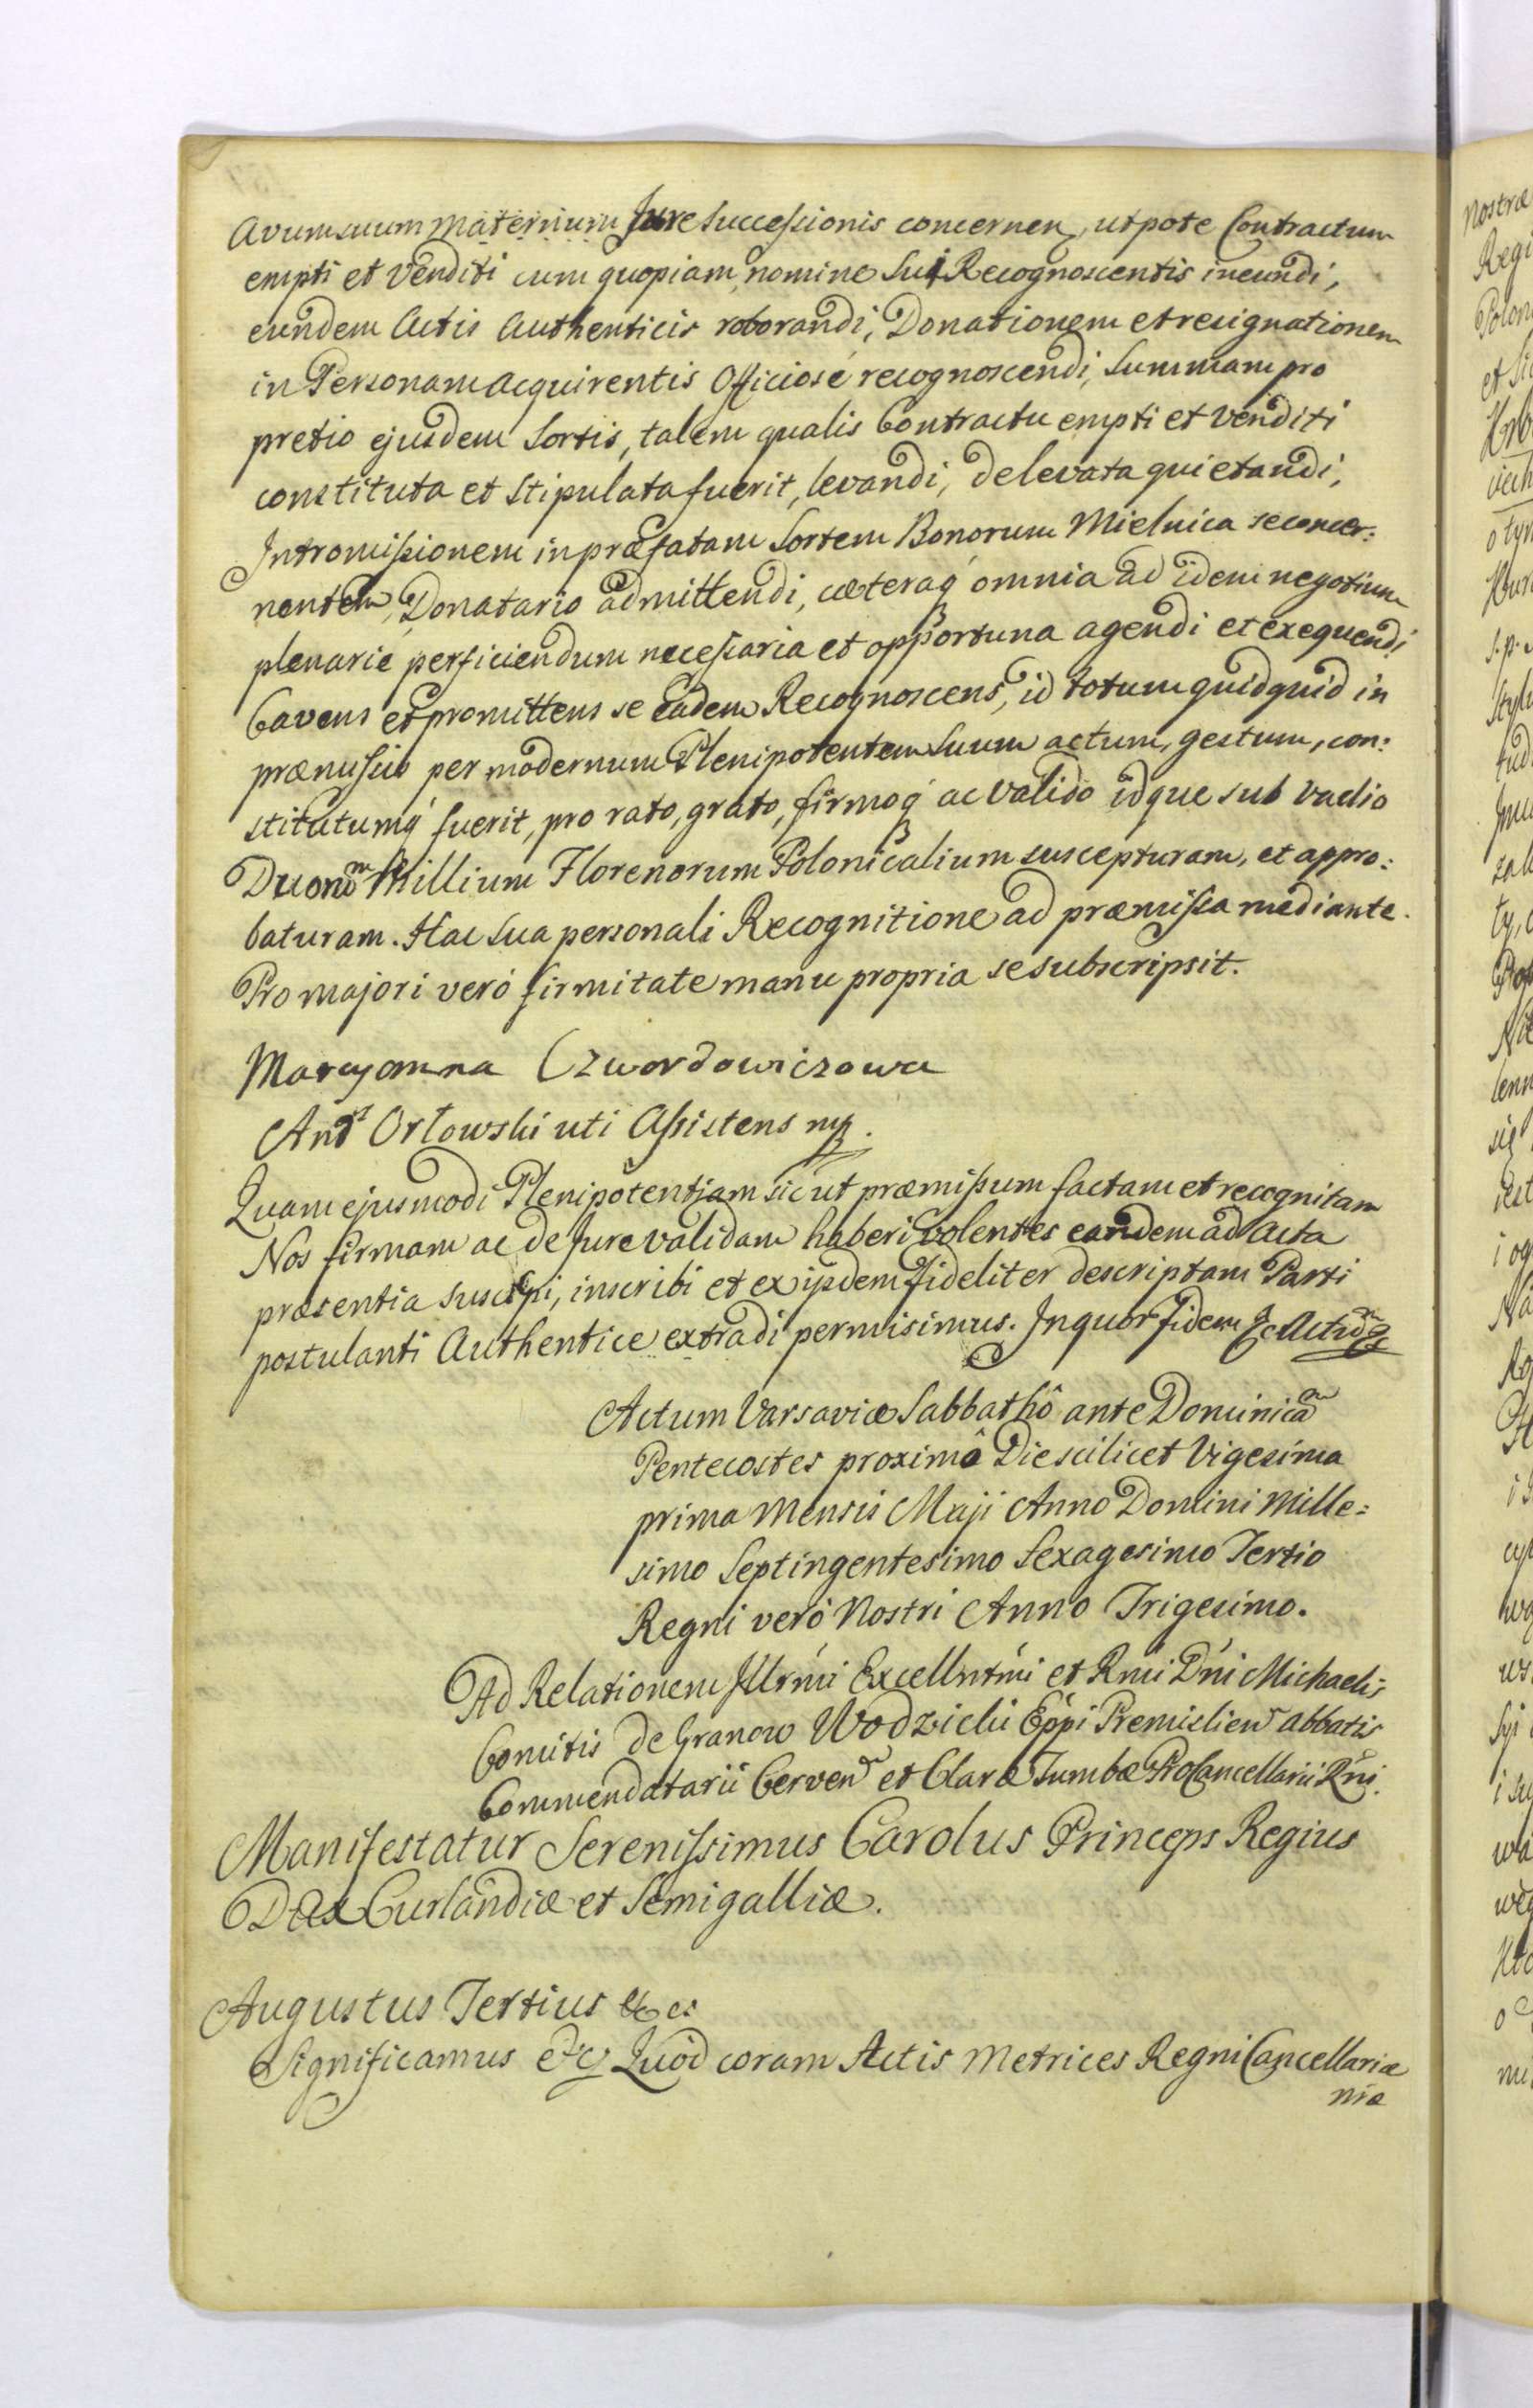 Avum suum Maternum Jure Successionis concernen, utpote Contractum
empti et Venditi cum quopiam nomine Sui Recognoscentis ineundi,
eundem Actis Authenticis roborandi, Donationem et resignationem
in Personam acquirentis Officiosé recognoscendi, Summam pro
pretio ejusdem Sortis, talem qualis Contractu empti et Venditi
constituta et Stipulata fuerit, levandi, de levata quietandi,
Intromissionem in præfatam Sortem Bonorum Mielnica se concer:
nentem, Donatario admittendi, cæteraq omnia ad idem negotium
plenarie perficiendum necessaria et opportuna agendi et exequendi
Cavens et promittens se Eadem Recognoscens, id totum quidquid in
præmissis per modernum Plenipotentem Suum actum, gestum, con:
stitutumq fuerit, pro rato, grato, firmoq ac valido idque sub vadio
Duorum Millium Florenorum Polonicalium suscepturam, et appro:
baturam. Hac Sua personali Recognitione ad præmissa mediante.
Pro majori veró firmitate manu propria se subscripsit.
Maryanna Czwordowiczowa
And Orłowski uti Assistens mp.
Quam ejusmodi Plenipotentiam sic ut præmissum factam et recognitam
Nos firmam ac de Jure validam haberi volentes eandem ad Acta
præsentia suscipi, inscribi et ex ijsdem fideliter descriptam Parti
postulanti Authentice extradi permisimus. In quor fidem &c Actum
Actum Varsaviæ Sabbathô ante Dominicam
Pentecostes proximâ Die scilicet Vigesima
prima Mensis Maji Anno Domini Mille:
simo Septingentesimo Sexagesimo Tertio
Regni veró Nostri Anno Trigesimo.
Ad Relationem Illrmi Excellntmi et Rmi Dni Michaelis
Comitis de Granow Wodzicki Eppi Premislien Abbatis
Commendatarii Cerven et Claræ Tumbæ ProCancellarii Rni.
Manifestatur Serenissimus Carolus Princeps Regius
Dux Curlandiæ et Semigalliæ.
Augustus Tertius &c
Significamus &c Quòd coram Actis Metrices Regni Cancellariæ